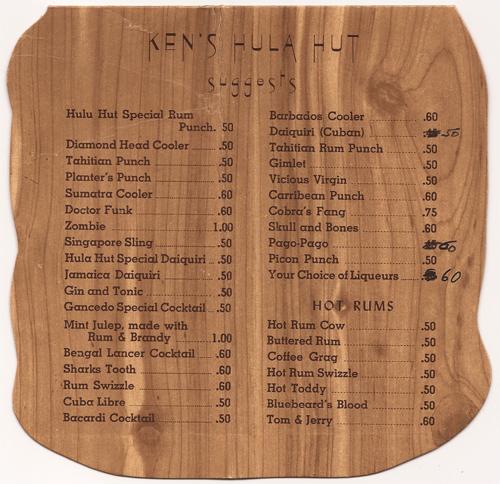 KEN'S HULA HUT
suggests
Hulu Hut Special Rum
Punch. 50
Diamond Head Cooler .50
Tahitian Punch .50
Planter's Punch .50
Sumatra Cooler .60
Doctor Funk .60
Zombie 1.00
Singapore Sling .50
Hula Hut Special Daiquiri .50
Jamaica Daiquiri .50
Gin and Tonic .50
Gancedo Special Cocktail .50
Mint Julep, made with
Rum & Brandy 1.00
Bengal Lancer Cocktail .60
Sharks Tooth .60
Rum Swizzle .60
Cuba Libre .50
Bacardi Cocktail .50
Barbados Cooler .60
Daiquiri (Cuban) .50
Tahitian Rum Punch .50
Gimlet .50
Vicious Virgin .50
Carribean Punch .60
Cobra's Fang .75
Skull and Bones .60
Pago-Pago 60
Picon Punch .50
Your Choice of Liqueurs 60
HOT RUMS
Hot Rum Cow .50
Buttered Rum .50
Coffee Grag .50
Hot Rum Swizzle .50
Hot Toddy .50
Bluebeard's Blood .50
Tom & Jerry .60